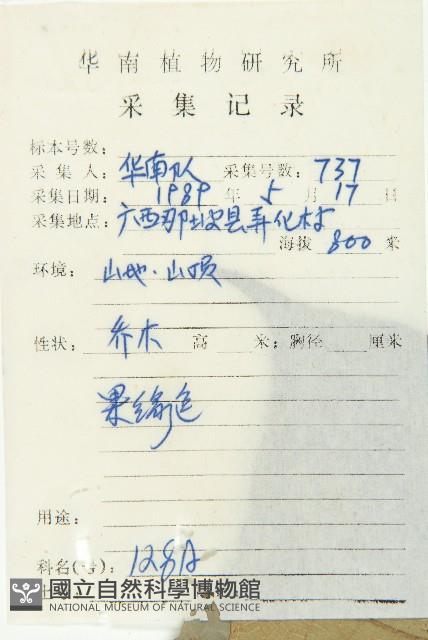 华南植物研究所
采集记录
标本号数:
采集人: 华南队 采集号数: 737
采集日期: 1989 年 5 月 17 日
采集地点: 广西那坡县弄化村
海拔 800 米
环境: 山地·山顶
性状: 乔木 高 米; 胸径 厘米
果绿色
用途:
科名(号):
國立自然科學博物館
NATIONAL MUSEUM OF NATURAL SCIENCE